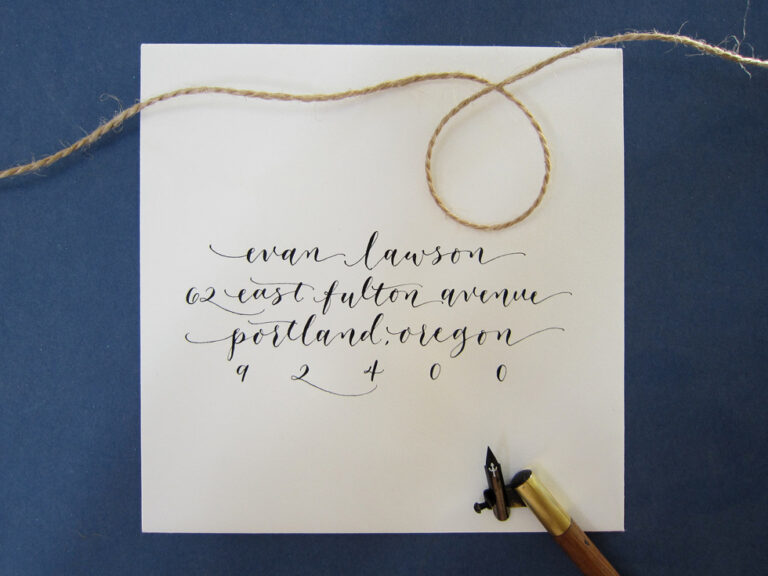 evan lawson
62 east fulton avenue
portland, oregon
9 2 4 0 0